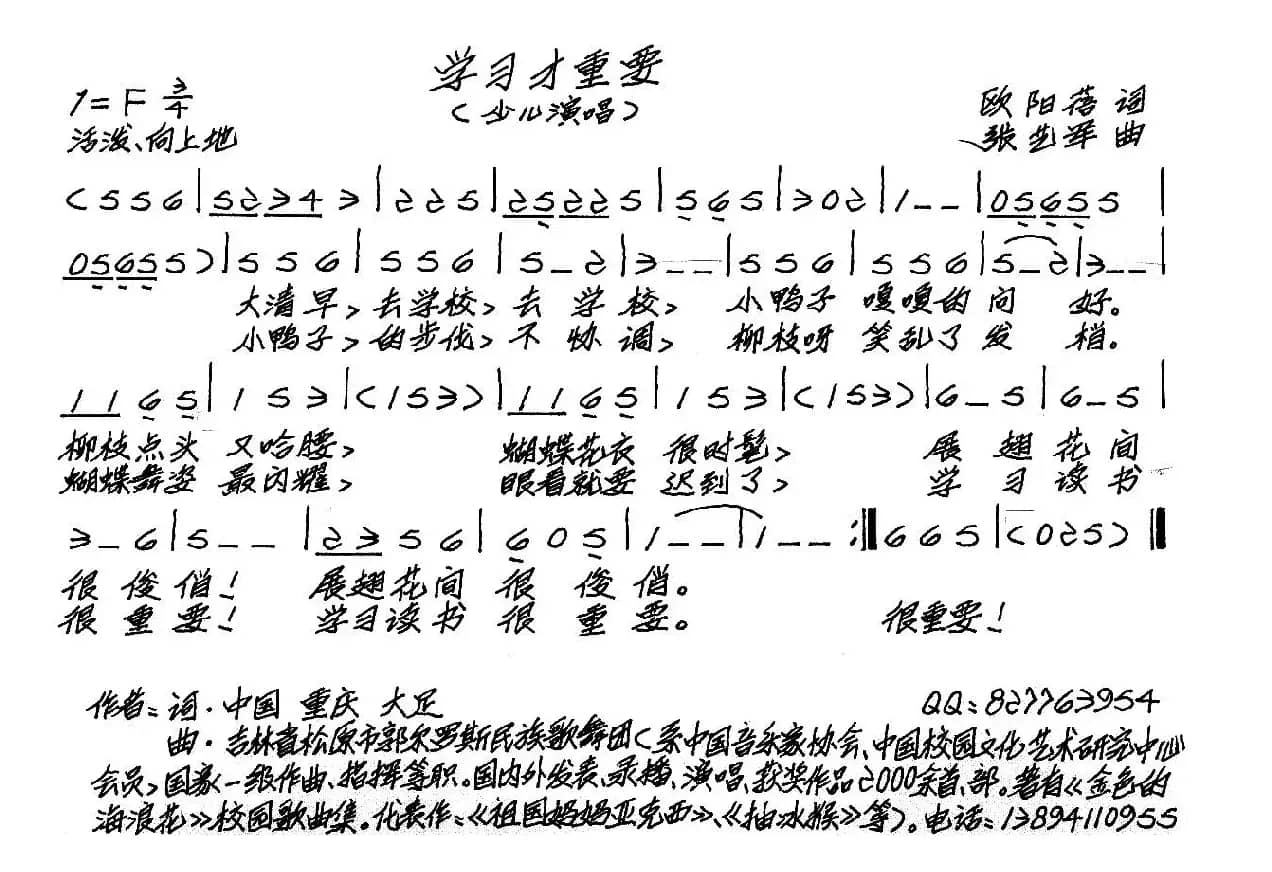 学习才重要
(少儿演唱)
1=F 3/4
欧阳蓓 词
活泼、向上地
张艺军 曲
(5 5 6|5 2 3 4 3|2 2 5|2 5 2 2 5|5 6 5|3 0 2|1 - -|0 5 6 5 5|
0 5 6 5 5)|5 5 6|5 5 6|5 - 2|3 - -|5 5 6|5 5 6|5 - 2|3 - -|
大清早,去学校,去学校,小鸭子嘎嘎的问好。
小鸭子,的步伐,不协调,柳枝呀笑乱了发梢。
1 1 6 5|1 5 3|(1 5 3)|1 1 6 5|1 5 3|(1 5 3)|6 - 5|6 - 5|
柳枝点头又哈腰,蝴蝶花衣很时髦,展翅花间
蝴蝶舞姿最闪耀,眼看就要迟到了,学习读书
3 - 6|5 - -|2 3 5 6|6 0 5|1 - -|1 - - :‖6 6 5|(0 2 5)‖
很俊俏!展翅花间很俊俏。
很重要!学习读书很重要。很重要!
作者:词·中国 重庆 大足 QQ:827763954
曲·吉林省松原市郭尔罗斯民族歌舞团(系中国音乐家协会、中国校园文化艺术研究中心
会员,国家一级作曲、指挥等职。国内外发表、录播、演唱、获奖作品2000余首、部。著有《金色的
海浪花》校园歌曲集。代表作:《祖国妈妈亚克西》、《抽冰猴》等)。电话:13894110955